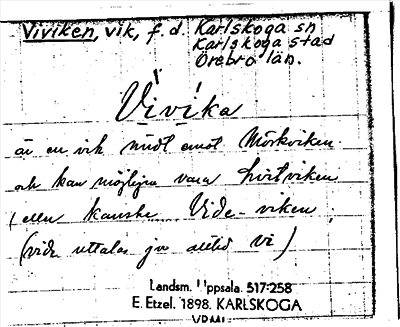 Viviken, vik, f.d. Karlskoga sn
Karlskoga stad
Örebro län.
Vivika
är en vik midt emot Mörkviken.
och kan möjligen vara hvitviken
(eller kanske Vide-viken
(vide uttalas ju alltid vi)
Landsm. Uppsala. 517:258
E. Etzel. 1898. KARLSKOGA
VRML